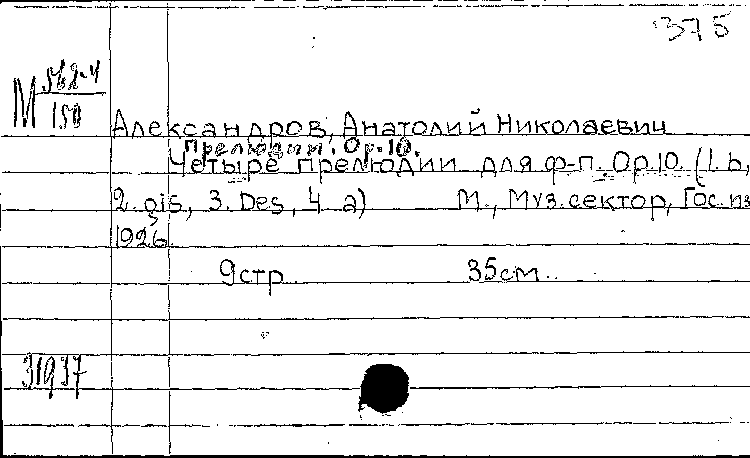 375
М 562-4
150
Александров, Анатолий Николаевич
Прелюдии. Op.10.
Четыре прелюдии для ф-п. Op.10. (1. b,
2. gis, 3. Des, 4 a) М., Муз.сектор, Гос.из
1926
9стр 35см.
31937